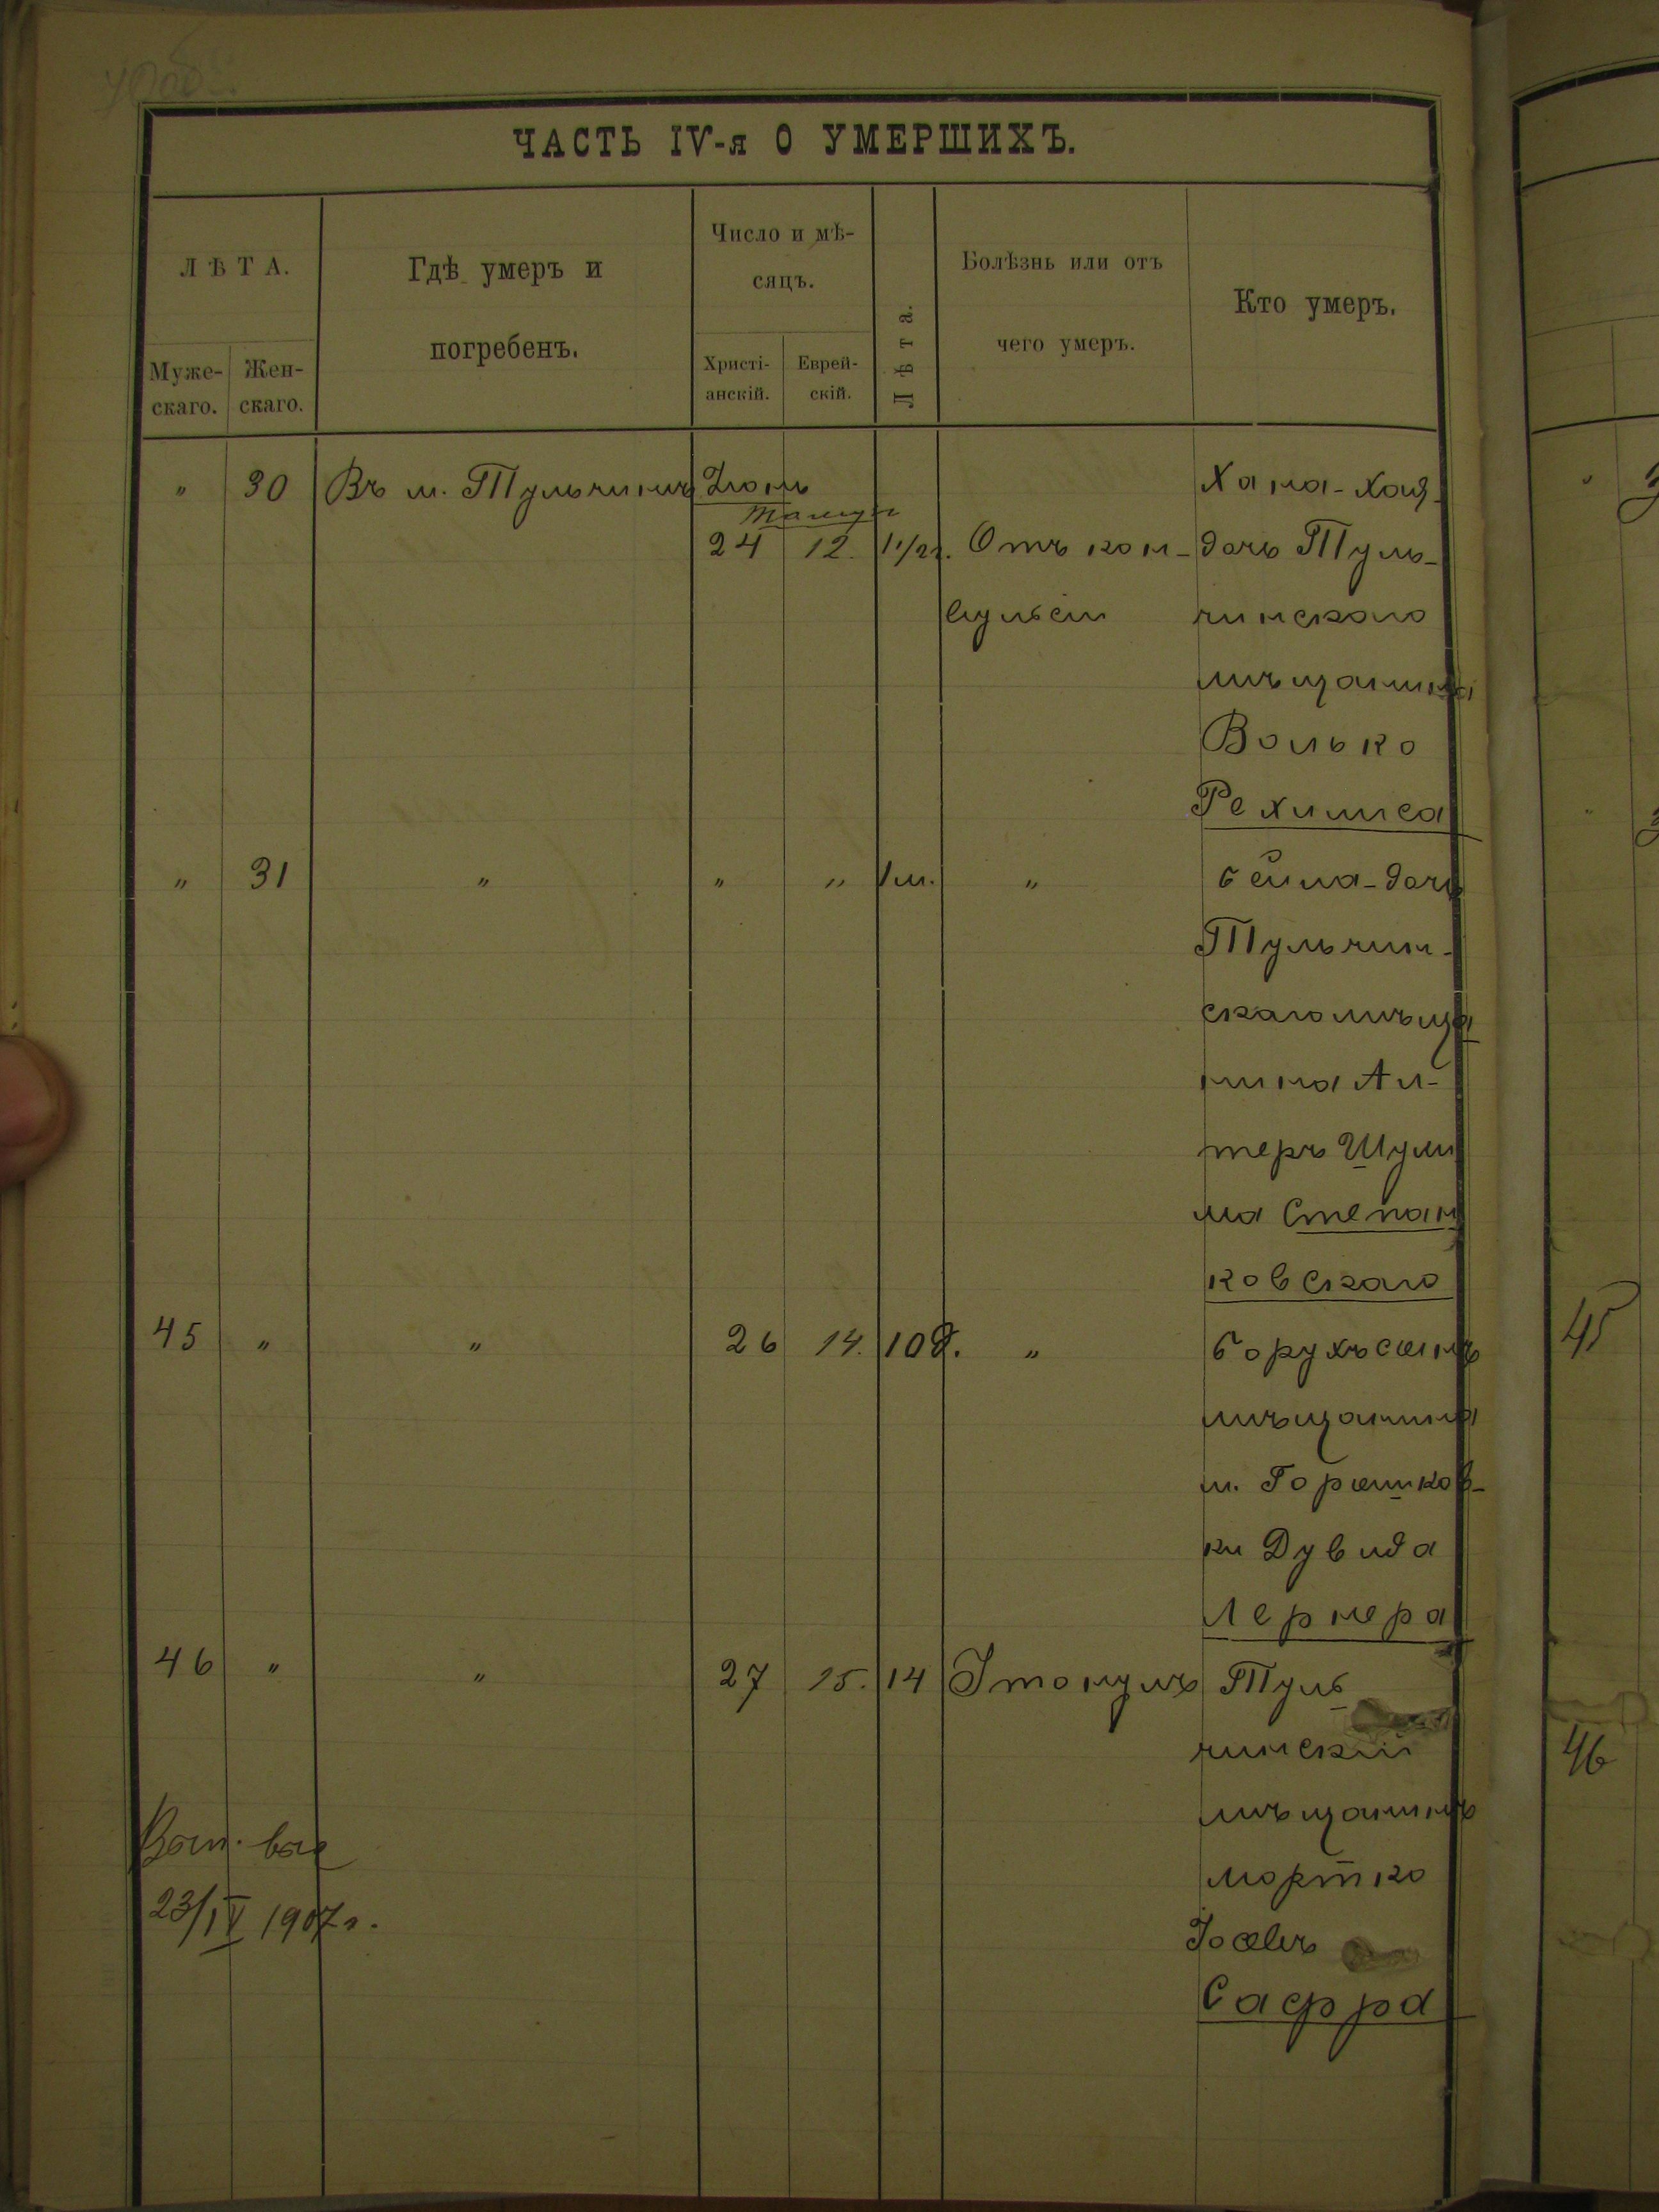 ЧАСТЬ IV-я О УМЕРШИХЪ.
ЛѢТА.
Муже-
скаго.
Жен-
скаго.
Гдѣ умеръ и
погребенъ.
Число и мѣ-
сяцъ.
Христі-
анскій.
Еврей-
скій.
Лѣта.
Болѣзнь или отъ
чего умеръ.
Кто умеръ.
" 30 Въ м. Тульчинѣ Іюнь Хана-Хая
Тамузъ
24 12. 1 1/2 г. Отъ кон- дочь Туль-
вульсіи чинскаго
мѣщанина
Волько
Рехлиса
" 31 " " " 1 м. " Бейла-дочь
Тульчин-
скаго мѣща
нина Ал-
теръ Шули
ма Степан
ковскаго
45 " " 26 14. 10 д. " Борухъ сынъ
мѣщанина
м. Горышков-
ки Дувида
Лернера
46 " " 27 15. 14 Туль
чинскій
мѣщанинъ
Мортко
Іосевъ
Сафра
23/IV 1907 г.
45
46